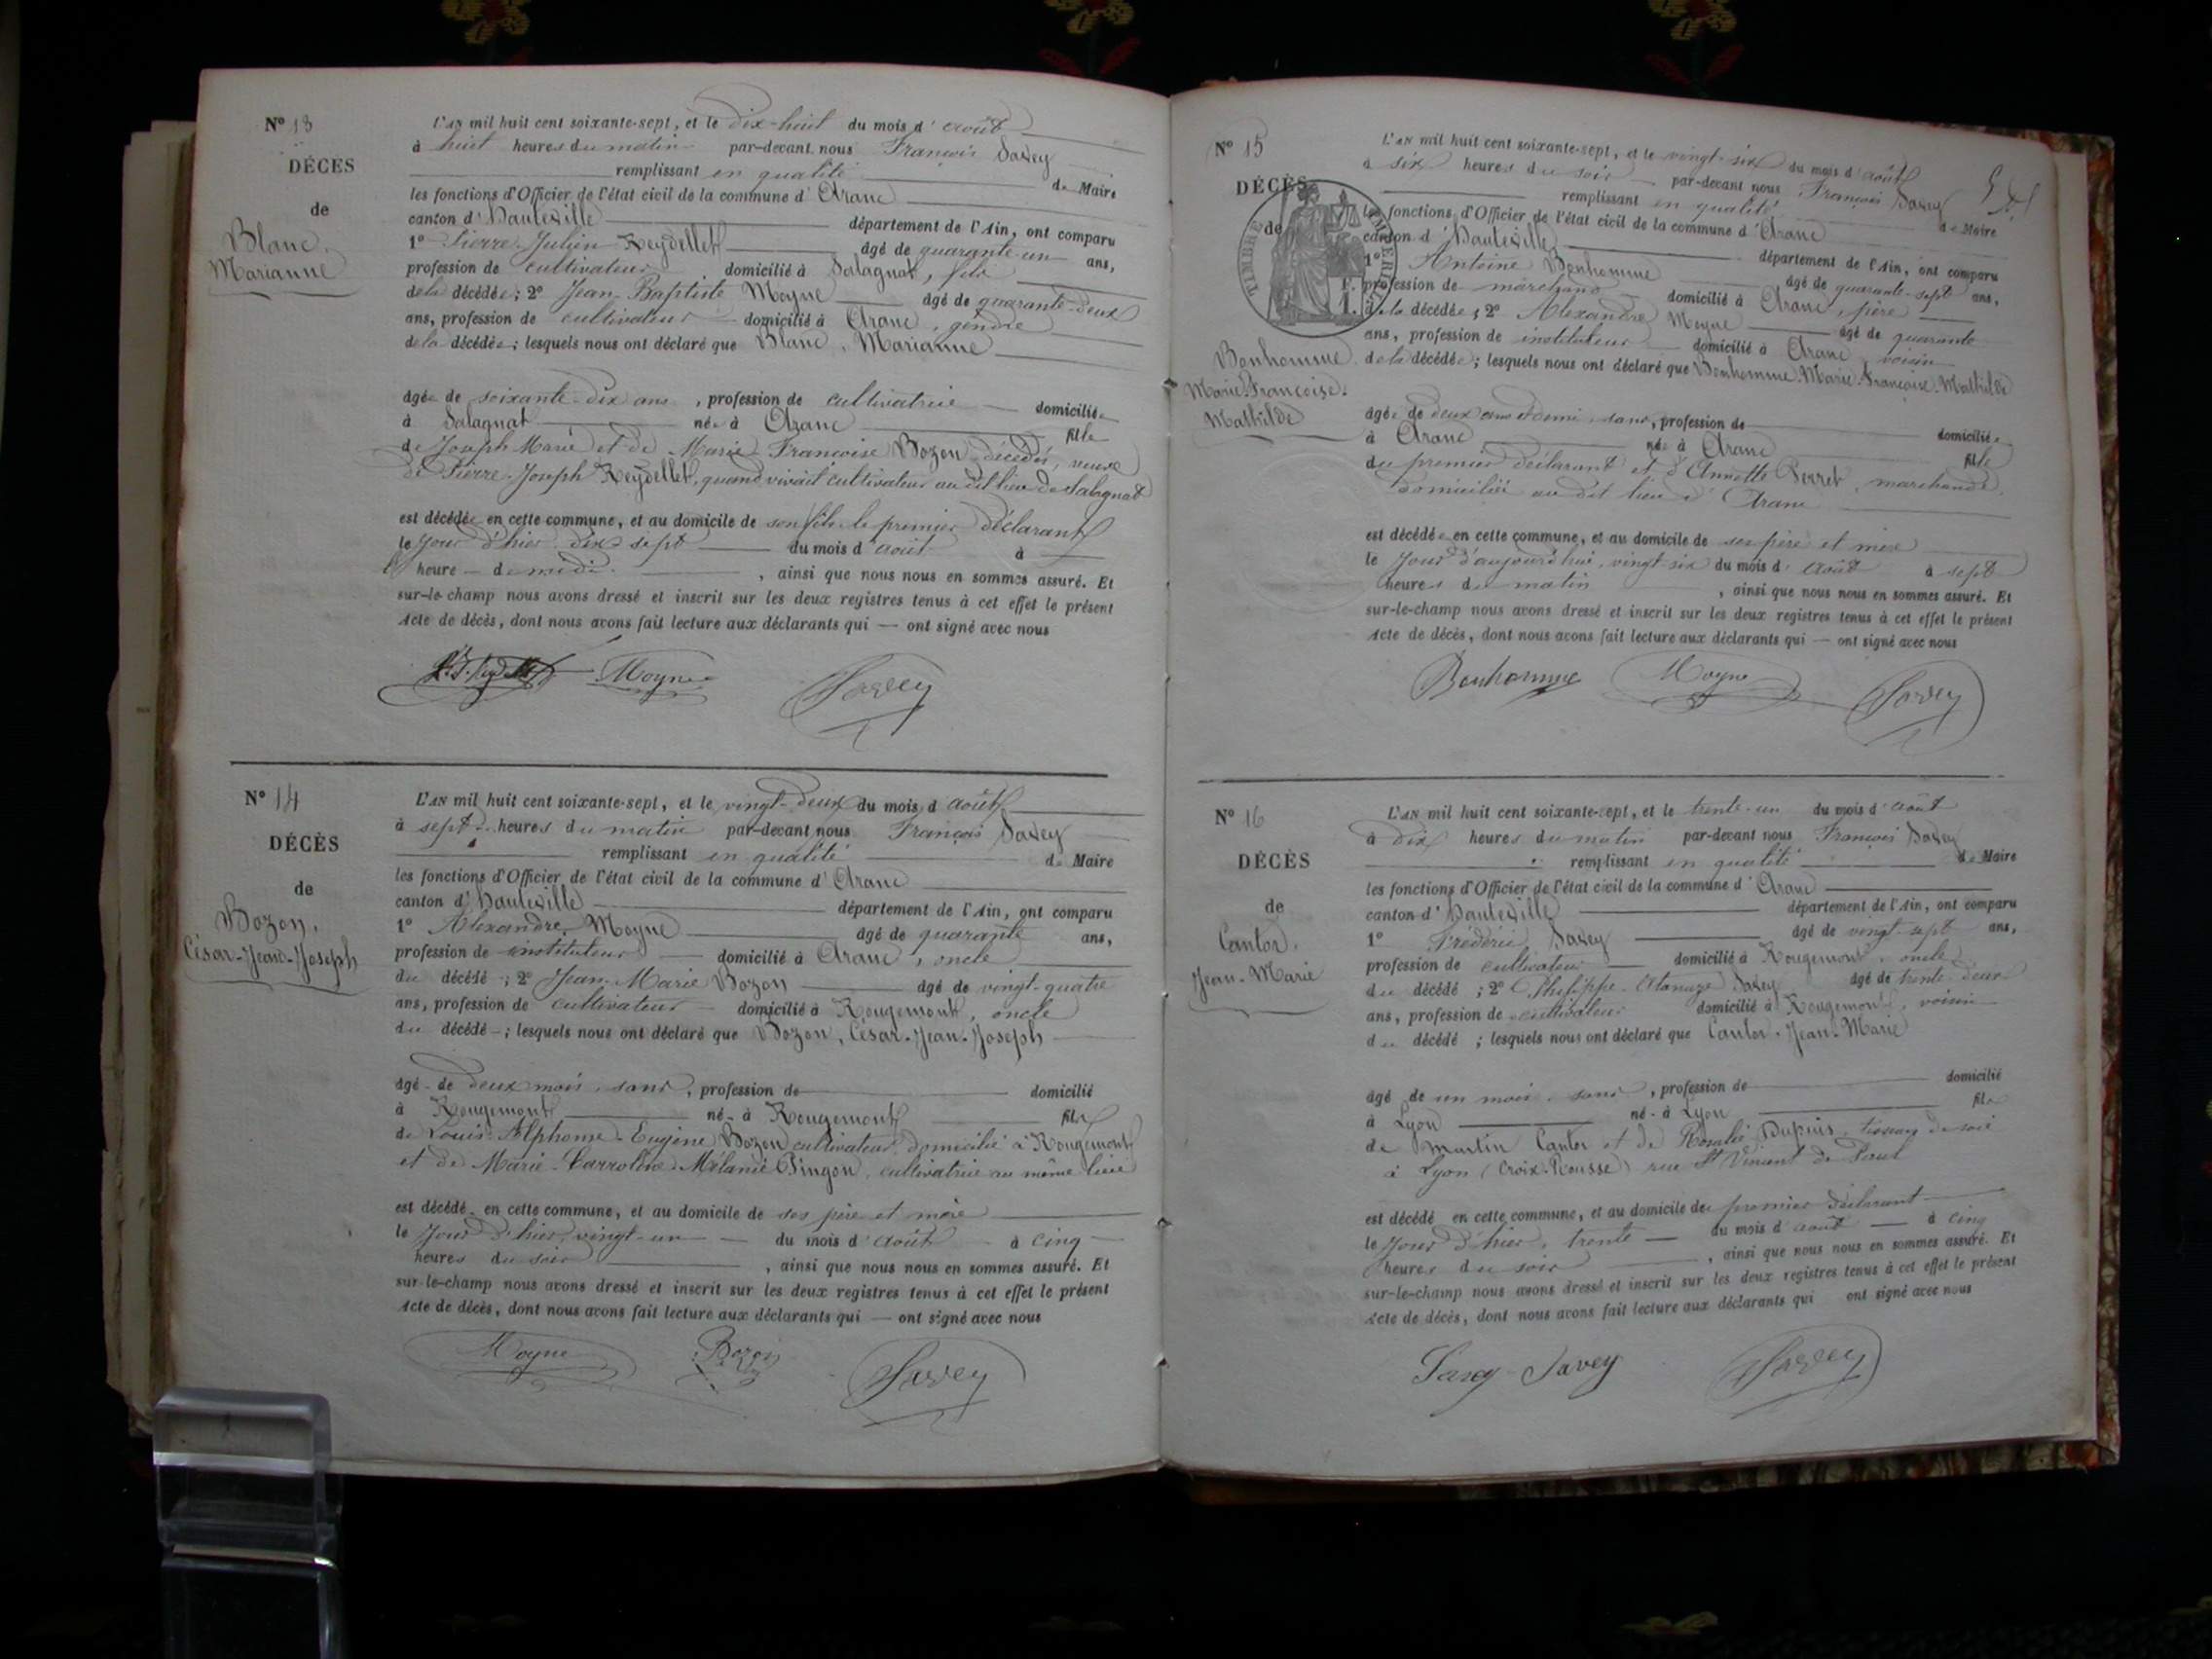 Nº 13
DÉCÈS
de
Blanc,
Marianne
L'AN mil huit cent soixante-sept, et le dix-huit du mois d'août
à huit heures du matin par-devant nous François Savey
remplissant en qualité de Maire
les fonctions d'Officier de l'état civil de la commune d'Aranc
canton d'Hauteville département de l'Ain, ont comparu
1º Pierre-Julien Reydellet âgé de quarante-un ans,
profession de cultivateur domicilié à Salagnat, fils
de la décédée; 2º Jean-Baptiste Moyne âgé de quarante-deux
ans, profession de cultivateur domicilié à Aranc, gendre
de la décédée; lesquels nous ont déclaré que Blanc, Marianne
âgée de soixante-dix ans, profession de cultivatrice domiciliée
à Salagnat née à Aranc fille
de Joseph Marie et de Marie Françoise Bozon, décédés, veuve
de Pierre-Joseph Reydellet, quand vivait cultivateur au dit lieu de Salagnat
est décédée en cette commune, et au domicile de son fils le premier déclarant
le jour d'hier dix-sept du mois d'août à
l'heure de midi, ainsi que nous nous en sommes assuré. Et
sur-le-champ nous avons dressé et inscrit sur les deux registres tenus à cet effet le présent
Acte de décès, dont nous avons fait lecture aux déclarants qui — ont signé avec nous
Moyne Savey
Nº 14
DÉCÈS
de
Bozon,
César-Jean-Joseph
L'AN mil huit cent soixante-sept, et le vingt-deux du mois d'août
à sept heures du matin par-devant nous François Savey
remplissant en qualité de Maire
les fonctions d'Officier de l'état civil de la commune d'Aranc
canton d'Hauteville département de l'Ain, ont comparu
1º Alexandre Moyne âgé de quarante ans,
profession de instituteur domicilié à Aranc, oncle
du décédé; 2º Jean-Marie Bozon âgé de vingt-quatre
ans, profession de cultivateur domicilié à Rougemont, oncle
du décédé; lesquels nous ont déclaré que Bozon, César-Jean-Joseph
âgé de deux mois, sans, profession de domicilié
à Rougemont né à Rougemont fils
de Louis-Alphonse-Eugène Bozon cultivateur, domicilié à Rougemont
et de Marie-Carroline-Mélanie Pingon, cultivatrice au même lieu
est décédé en cette commune, et au domicile de ses père et mère
le jour d'hier, vingt-un du mois d'août à cinq
heures du soir, ainsi que nous nous en sommes assuré. Et
sur-le-champ nous avons dressé et inscrit sur les deux registres tenus à cet effet le présent
Acte de décès, dont nous avons fait lecture aux déclarants qui — ont signé avec nous
Moyne Bozon Savey
Nº 15
DÉCÈS
de
TIMBRE IMPÉRIAL
Bonhomme
Marie-Françoise-
Mathilde
L'AN mil huit cent soixante-sept, et le vingt-six du mois d'août
à six heures du soir par-devant nous François Savey
remplissant en qualité de Maire
les fonctions d'Officier de l'état civil de la commune d'Aranc
canton d'Hauteville département de l'Ain, ont comparu
1º Antoine Bonhomme âgé de quarante-sept ans,
profession de marchand domicilié à Aranc, père
de la décédée; 2º Alexandre Moyne âgé de quarante
ans, profession de instituteur domicilié à Aranc, voisin
de la décédée; lesquels nous ont déclaré que Bonhomme, Marie-Françoise-Mathilde
âgée de deux ans et demi, sans, profession de domiciliée
à Aranc née à Aranc fille
du premier déclarant et d'Annette Perret, marchande,
domiciliée au dit lieu d'Aranc
est décédée en cette commune, et au domicile de ses père et mère
le jour d'aujourd'hui, vingt-six du mois d'août à sept
heures du matin, ainsi que nous nous en sommes assuré. Et
sur-le-champ nous avons dressé et inscrit sur les deux registres tenus à cet effet le présent
Acte de décès, dont nous avons fait lecture aux déclarants qui — ont signé avec nous
Bonhomme Moyne Savey
Nº 16
DÉCÈS
de
Cantor,
Jean-Marie
L'AN mil huit cent soixante-sept, et le trente-un du mois d'août
à dix heures du matin par-devant nous François Savey
remplissant en qualité de Maire
les fonctions d'Officier de l'état civil de la commune d'Aranc
canton d'Hauteville département de l'Ain, ont comparu
1º Frédéric Savey âgé de vingt-sept ans,
profession de cultivateur domicilié à Rougemont, oncle
du décédé; 2º Philippe-Atanaze Savey âgé de trente-deux
ans, profession de cultivateur domicilié à Rougemont, voisin
du décédé; lesquels nous ont déclaré que Cantor, Jean-Marie
âgé de un mois, sans, profession de domicilié
à Lyon né à Lyon fils
de Martin Cantor et de Rosalie Dupuis, tisseurs de soie
à Lyon (Croix-Rousse) rue St Vincent de Paul
est décédé en cette commune, et au domicile du premier déclarant
le jour d'hier, trente du mois d'août à cinq
heures du soir, ainsi que nous nous en sommes assuré. Et
sur-le-champ nous avons dressé et inscrit sur les deux registres tenus à cet effet le présent
Acte de décès, dont nous avons fait lecture aux déclarants qui ont signé avec nous
Savey Savey